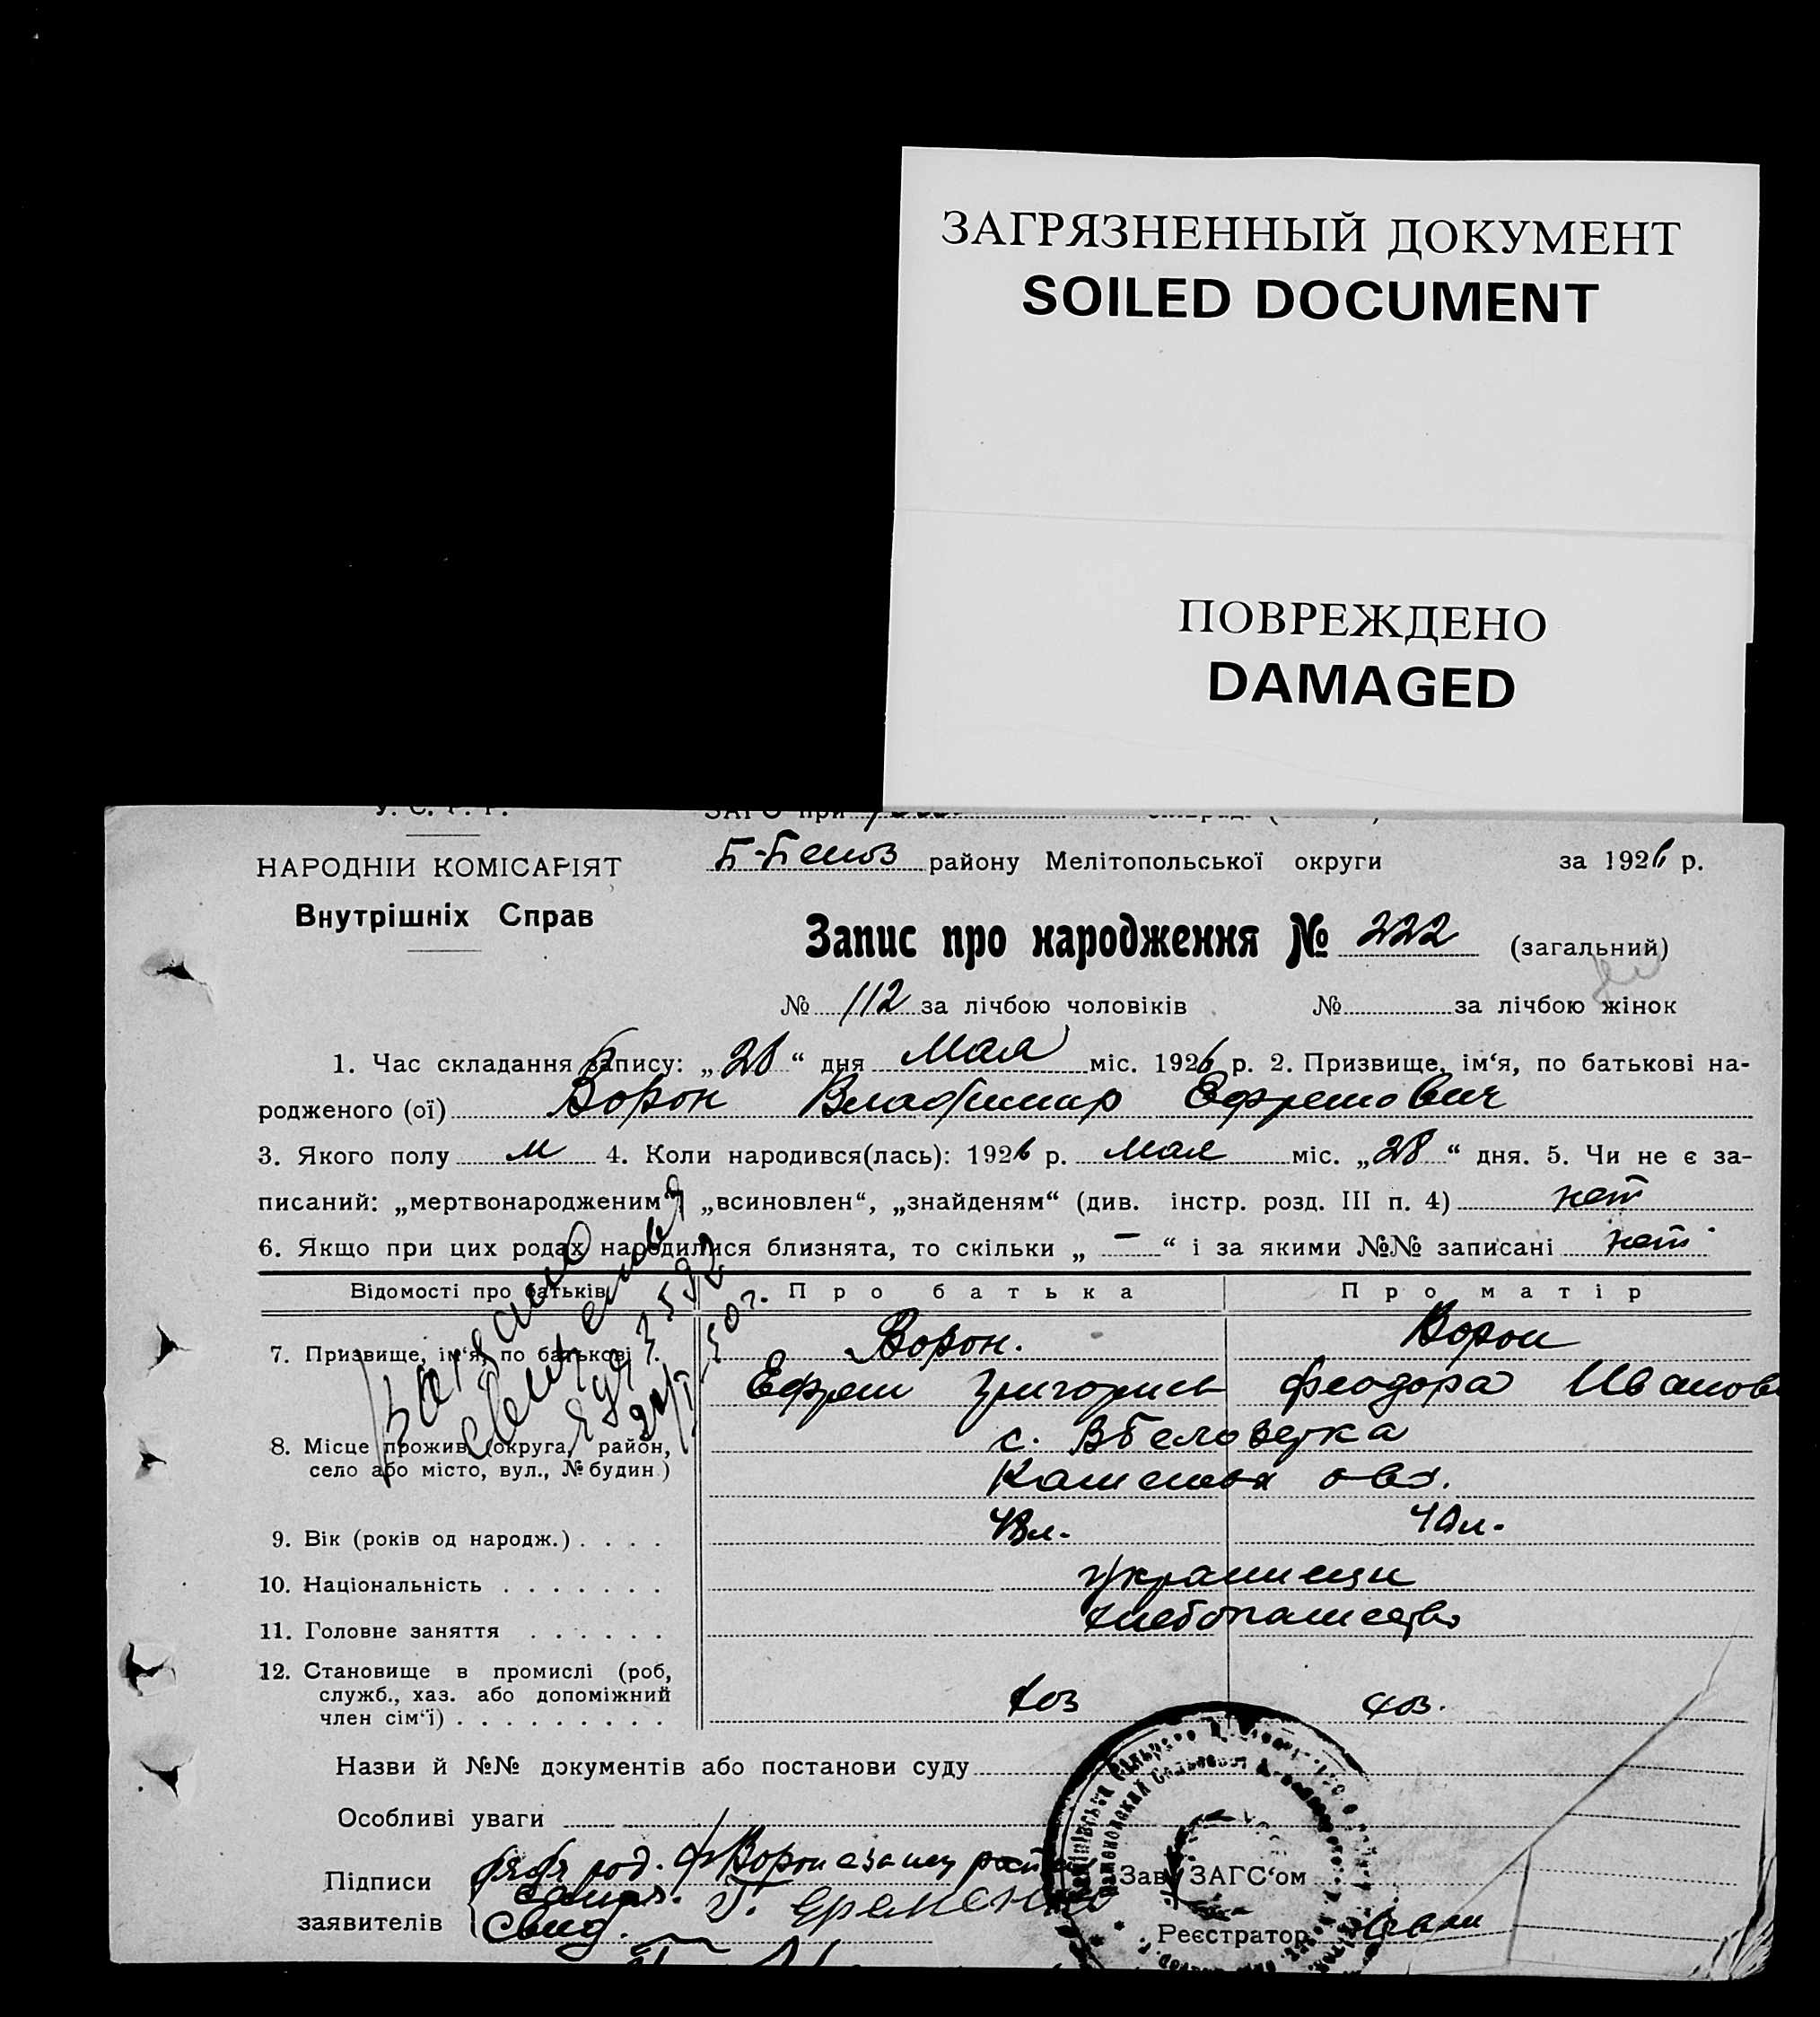 ЗАГРЯЗНЕННЫЙ ДОКУМЕНТ
SOILED DOCUMENT
ПОВРЕЖДЕНО
DAMAGED
У. С. Р. Р.
ЗАГС при
НАРОДНІЙ КОМІСАРІЯТ
Внутрішніх Справ
району Мелітопольської округи за 1926 р.
Запис про народження № 222 (загальний)
№ 112 за лічбою чоловіків № за лічбою жінок
1. Час складання запису: „28“ дня Мая міс. 1926 р. 2. Призвище, ім‘я, по батькові на-
родженого (ої) Ворон Владимир Ефремович
3. Якого полу м 4. Коли народився(лась): 1926 р. мая міс. „28“ дня. 5. Чи не є за-
писаний: „мертвонародженим“, „всиновлен“, „знайденям“ (див. інстр. розд. III п. 4) нет
6. Якщо при цих родах народилися близнята, то скільки „ — “ і за якими №№ записані нет
Відомості про батьків Про батька Про матір
7. Призвище, ім‘я, по батькові . Ворон. Ворон
Ефрем Григорьев Феодора Иванов
8. Місце прожив. (округа, район,
село або місто, вул., № будин.)
с.
9. Вік (років од народж.) . . . . 43л. 40л.
10. Національність . . . . . . . украинцы
11. Головне заняття . . . . . . хлебопашество
12. Становище в промислі (роб,
служб., хаз. або допоміжний
член сім‘ї) . . . . . . . . . хоз хоз.
Назви й №№ документів або постанови суду
Особливі уваги
Підписи
заявителів
Свид.
Т. Еременко
Зав. ЗАГС‘ом
Реєстратор